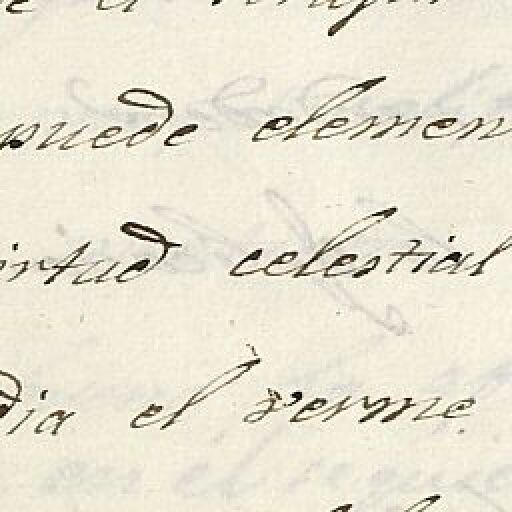 puede elemen
irtud celestial
dia el verme